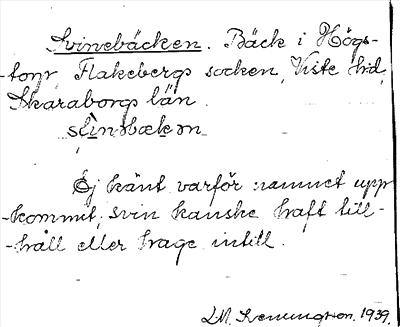 Svinebäcken. Bäck i Högs-
-torp Flakebergs socken, Viste hd,
Skaraborgs län.
Ej känt varför namnet upp
-kommit, svin kanske haft till-
-håll eller hage intill.
L.M. 1939.